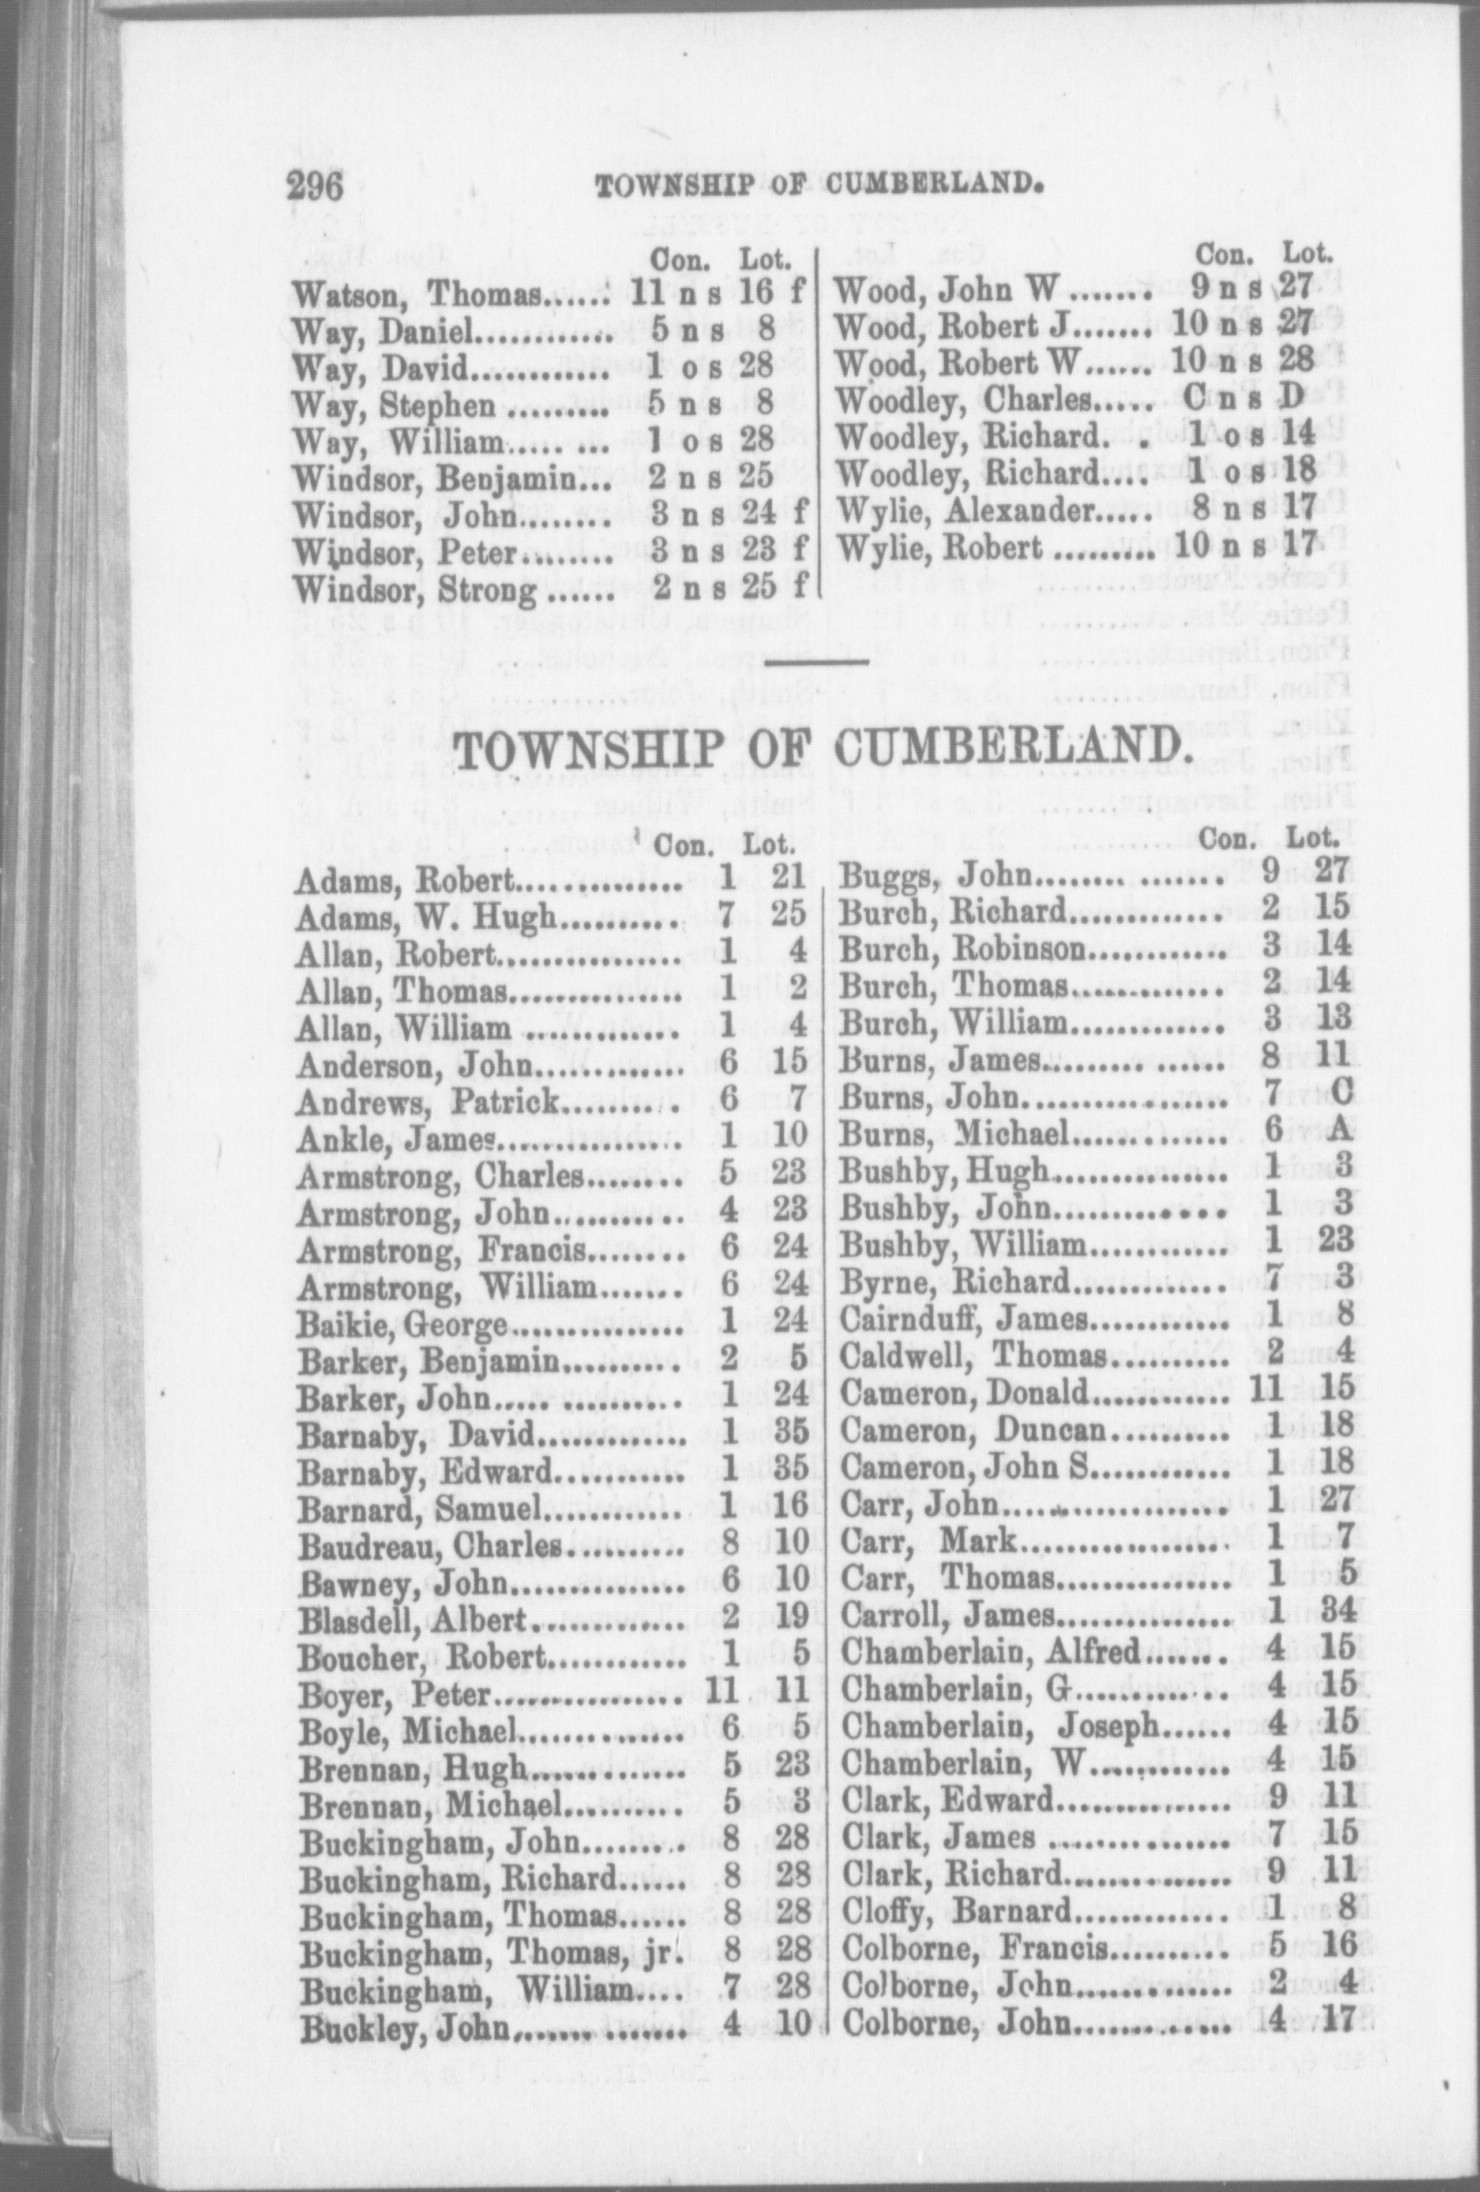 296 TOWNSHIP OF CUMBERLAND.
Con. Lot.
Watson, Thomas...... 11 n s 16 f
Way, Daniel............ 5 n s 8
Way, David............ 1 o s 28
Way, Stephen ......... 5 n s 8
Way, William..... ... 1 o s 28
Windsor, Benjamin... 2 n s 25
Windsor, John........ 3 n s 24 f
Windsor, Peter........ 3 n s 23 f
Windsor, Strong ...... 2 n s 25 f
Con. Lot.
Wood, John W ....... 9 n s 27
Wood, Robert J....... 10 n s 27
Wood, Robert W...... 10 n s 28
Woodley, Charles..... C n s D
Woodley, Richard. . 1 o s 14
Woodley, Richard.... 1 o s 18
Wylie, Alexander..... 8 n s 17
Wylie, Robert ......... 10 n s 17
TOWNSHIP OF CUMBERLAND.
Con. Lot.
Adams, Robert............... 1 21
Adams, W. Hugh.......... 7 25
Allan, Robert................ 1 4
Allan, Thomas............... 1 2
Allan, William ............. 1 4
Anderson, John............. 6 15
Andrews, Patrick.......... 6 7
Ankle, James................ 1 10
Armstrong, Charles........ 5 23
Armstrong, John........... 4 23
Armstrong, Francis........ 6 24
Armstrong, William....... 6 24
Baikie, George............... 1 24
Barker, Benjamin.......... 2 5
Barker, John..... .......... 1 24
Barnaby, David............. 1 35
Barnaby, Edward........... 1 35
Barnard, Samuel............ 1 16
Baudreau, Charles.......... 8 10
Bawney, John............... 6 10
Blasdell, Albert............. 2 19
Boucher, Robert............ 1 5
Boyer, Peter................ 11 11
Boyle, Michael.............. 6 5
Brennan, Hugh............. 5 23
Brennan, Michael.......... 5 3
Buckingham, John......... 8 28
Buckingham, Richard...... 8 28
Buckingham, Thomas...... 8 28
Buckingham, Thomas, jr. 8 28
Buckingham, William.... 7 28
Buckley, John....... ....... 4 10
Con. Lot.
Buggs, John........ ....... 9 27
Burch, Richard............. 2 15
Burch, Robinson............ 3 14
Burch, Thomas............. 2 14
Burch, William............. 3 13
Burns, James......... ...... 8 11
Burns, John.................. 7 C
Burns, Michael............. 6 A
Bushby, Hugh............... 1 3
Bushby, John............... 1 3
Bushby, William............ 1 23
Byrne, Richard............. 7 3
Cairnduff, James............ 1 8
Caldwell, Thomas.......... 2 4
Cameron, Donald............ 11 15
Cameron, Duncan.......... 1 18
Cameron, John S............ 1 18
Carr, John.................... 1 27
Carr, Mark.................. 1 7
Carr, Thomas............... 1 5
Carroll, James............... 1 34
Chamberlain, Alfred....... 4 15
Chamberlain, G............. 4 15
Chamberlain, Joseph...... 4 15
Chamberlain, W............ 4 15
Clark, Edward............... 9 11
Clark, James ................ 7 15
Clark, Richard............... 9 11
Cloffy, Barnard............. 1 8
Colborne, Francis.......... 5 16
Colborne, John.............. 2 4
Colborne, John.............. 4 17